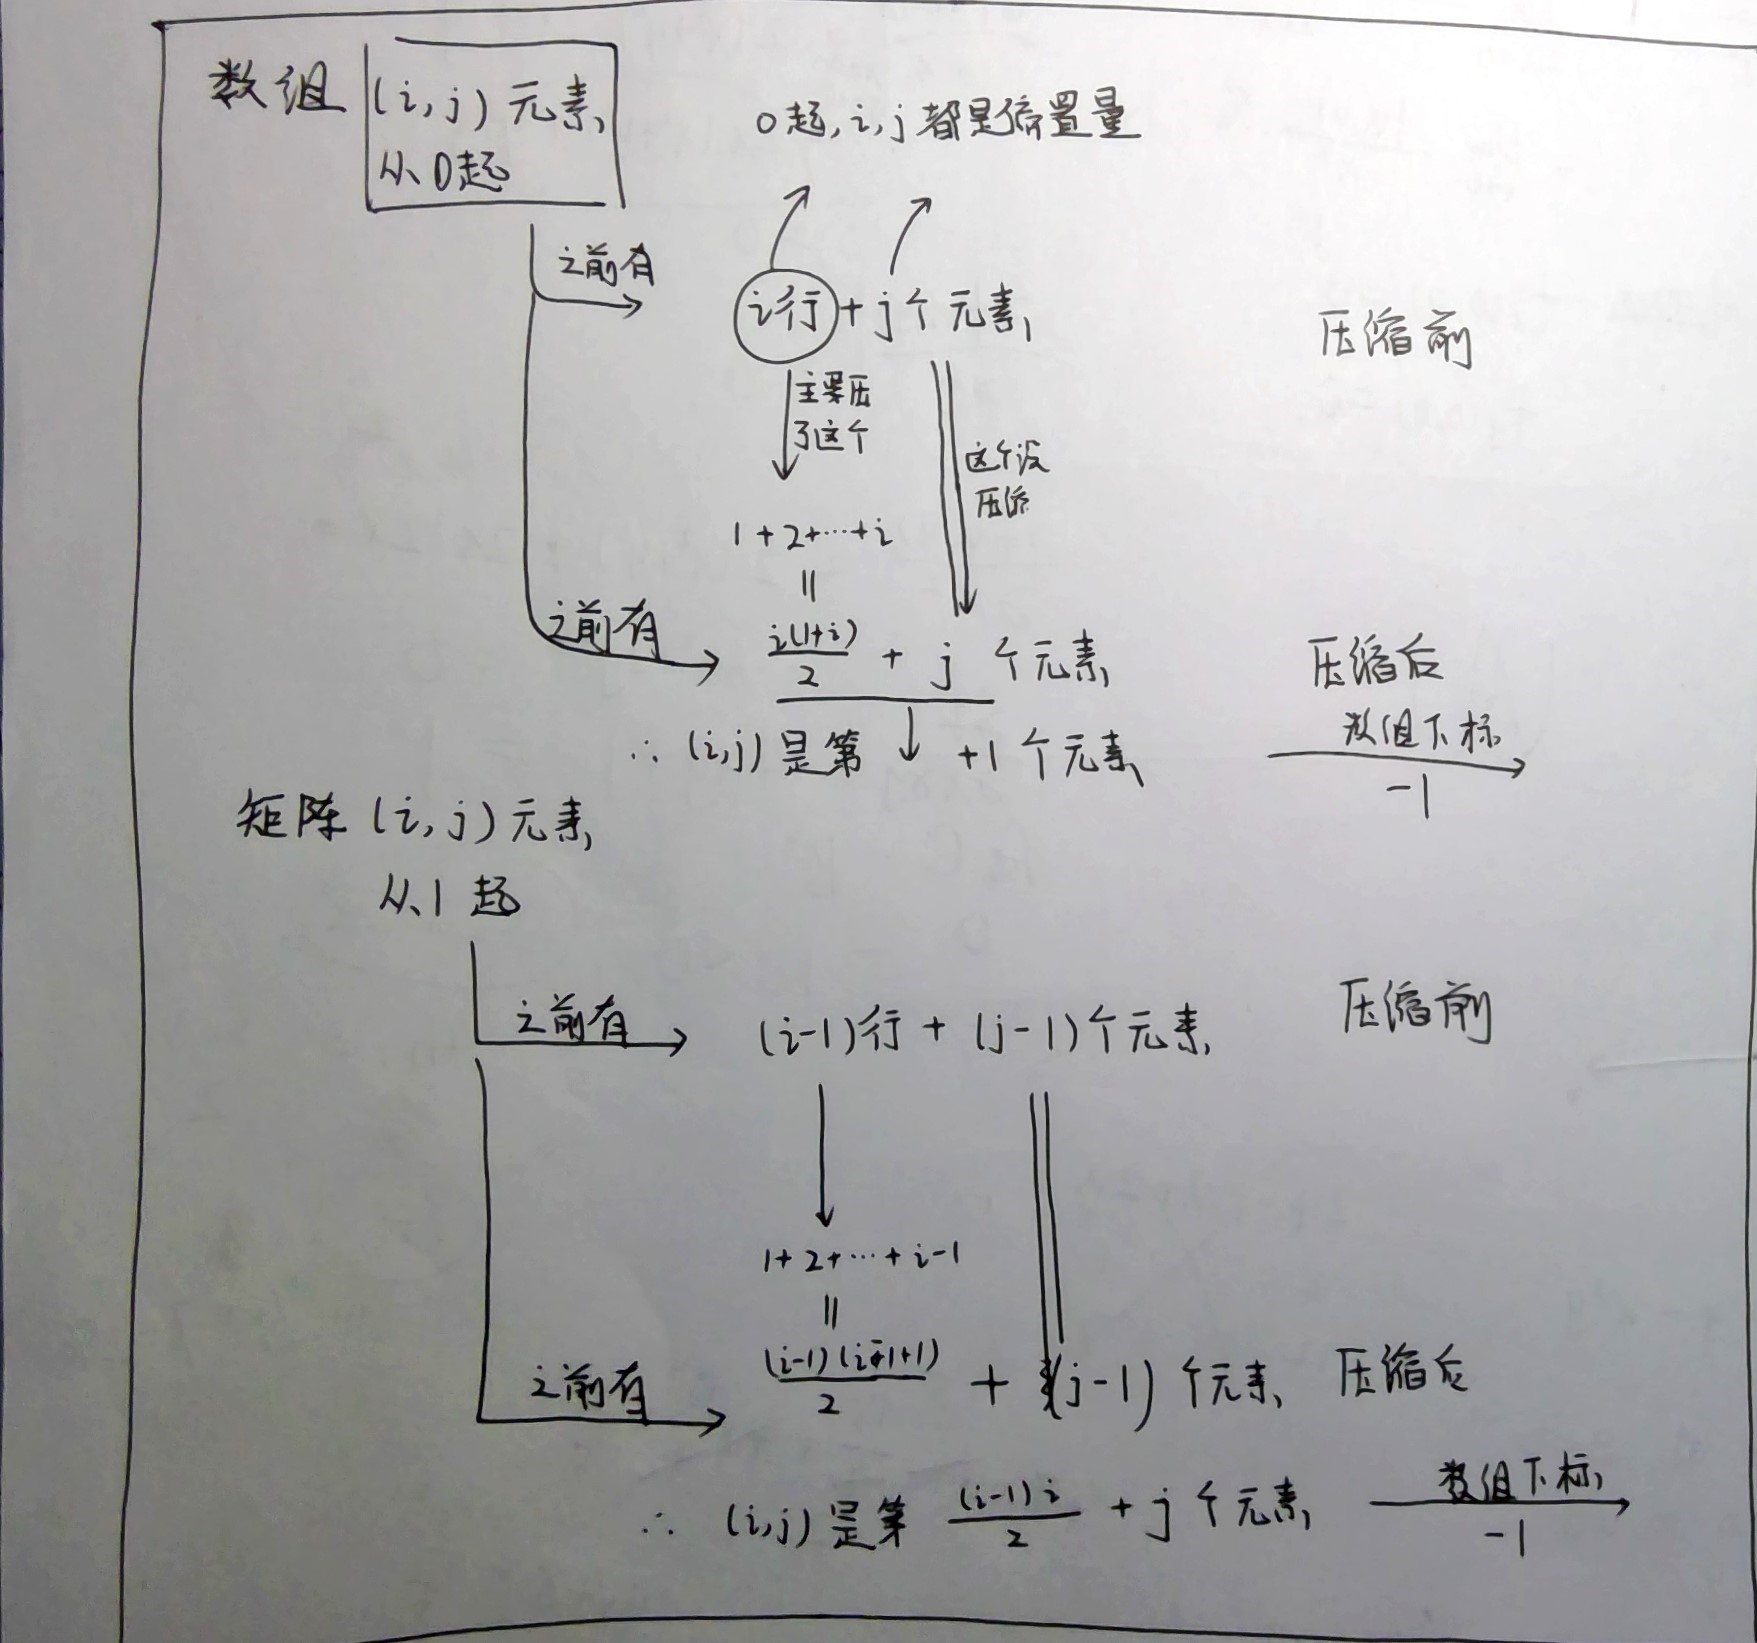 数组 (i,j) 元素
从0起
0起,i,j都是偏置量
之前有
i行 + j个元素
压缩前
主要压
了这个
这个没
压缩
1+2+…+i
=
之前有
i(1+i)/2 + j 个元素
压缩后
∴ (i,j)是第 ↓ +1 个元素
数组下标
-1
矩阵 (i,j)元素
从1起
之前有
(i-1)行 + (j-1)个元素
压缩前
1+2+…+i-1
=
之前有
(i-1)(i-1+1)/2 + (j-1) 个元素
压缩后
∴ (i,j)是第 (i-1)i/2 + j 个元素
数组下标
-1